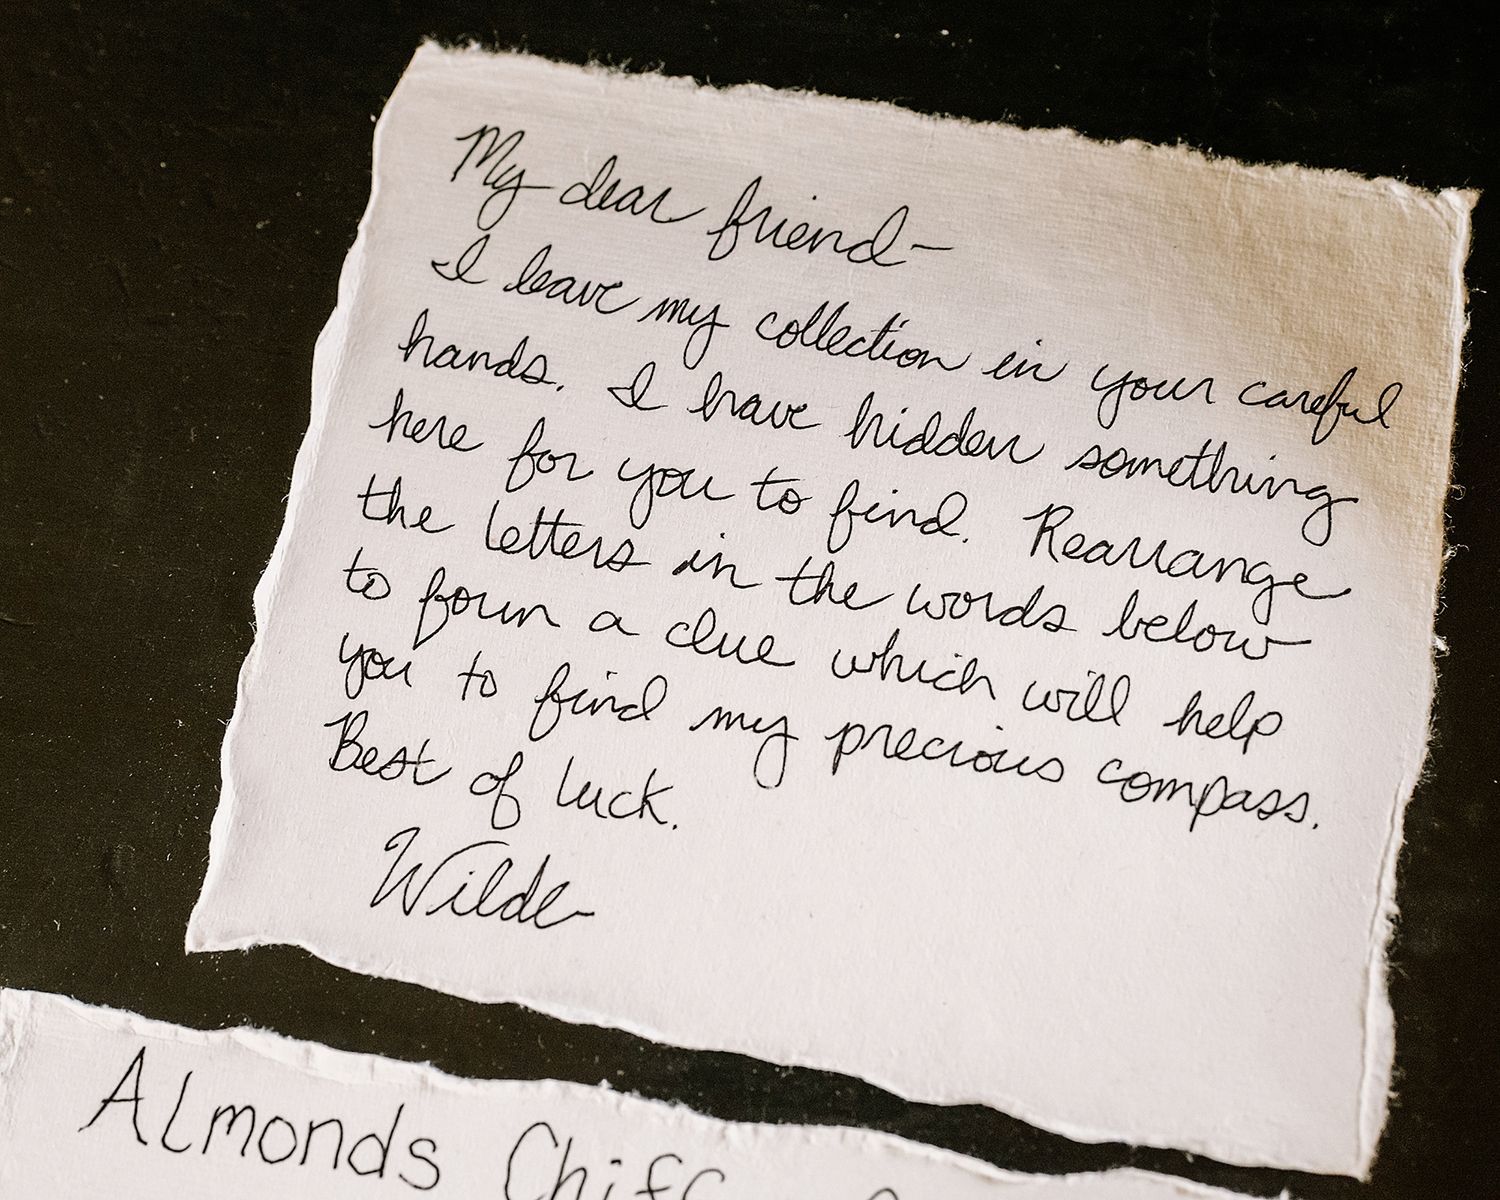 My dear friend-
I leave my collection in your careful
hands. I have hidden something
here for you to find. Rearrange
the letters in the words below
to form a clue which will help
you to find my precious compass.
Best of luck.
Wilde
Almonds